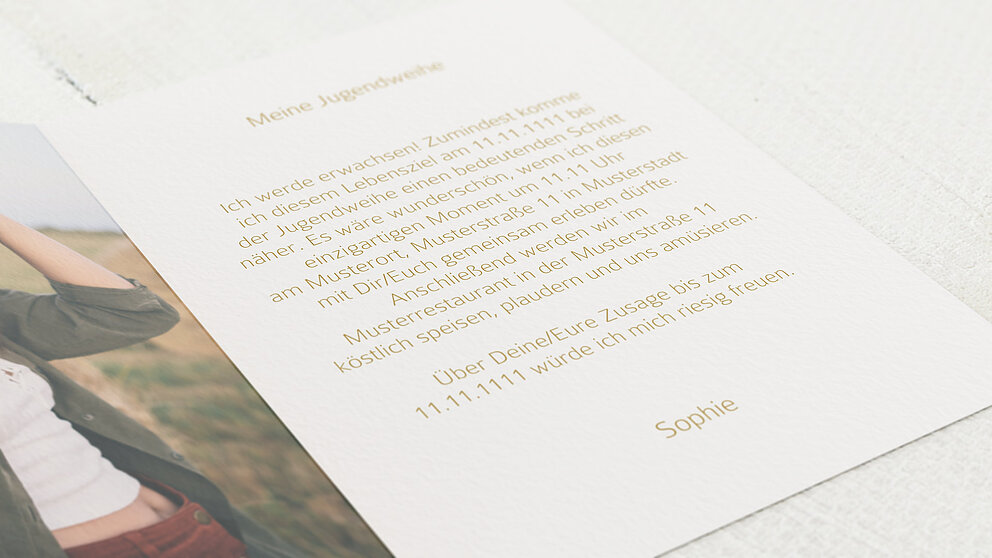 Meine Jugendweihe
Ich werde erwachsen! Zumindest komme
ich diesem Lebensziel am 11.11.1111 bei
der Jugendweihe einen bedeutenden Schritt
näher. Es wäre wunderschön, wenn ich diesen
einzigartigen Moment um 11.11 Uhr
am Musterort, Musterstraße 11 in Musterstadt
mit Dir/Euch gemeinsam erleben dürfte.
Anschließend werden wir im
Musterrestaurant in der Musterstraße 11
köstlich speisen, plaudern und uns amüsieren.
Über Deine/Eure Zusage bis zum
11.11.1111 würde ich mich riesig freuen.
Sophie